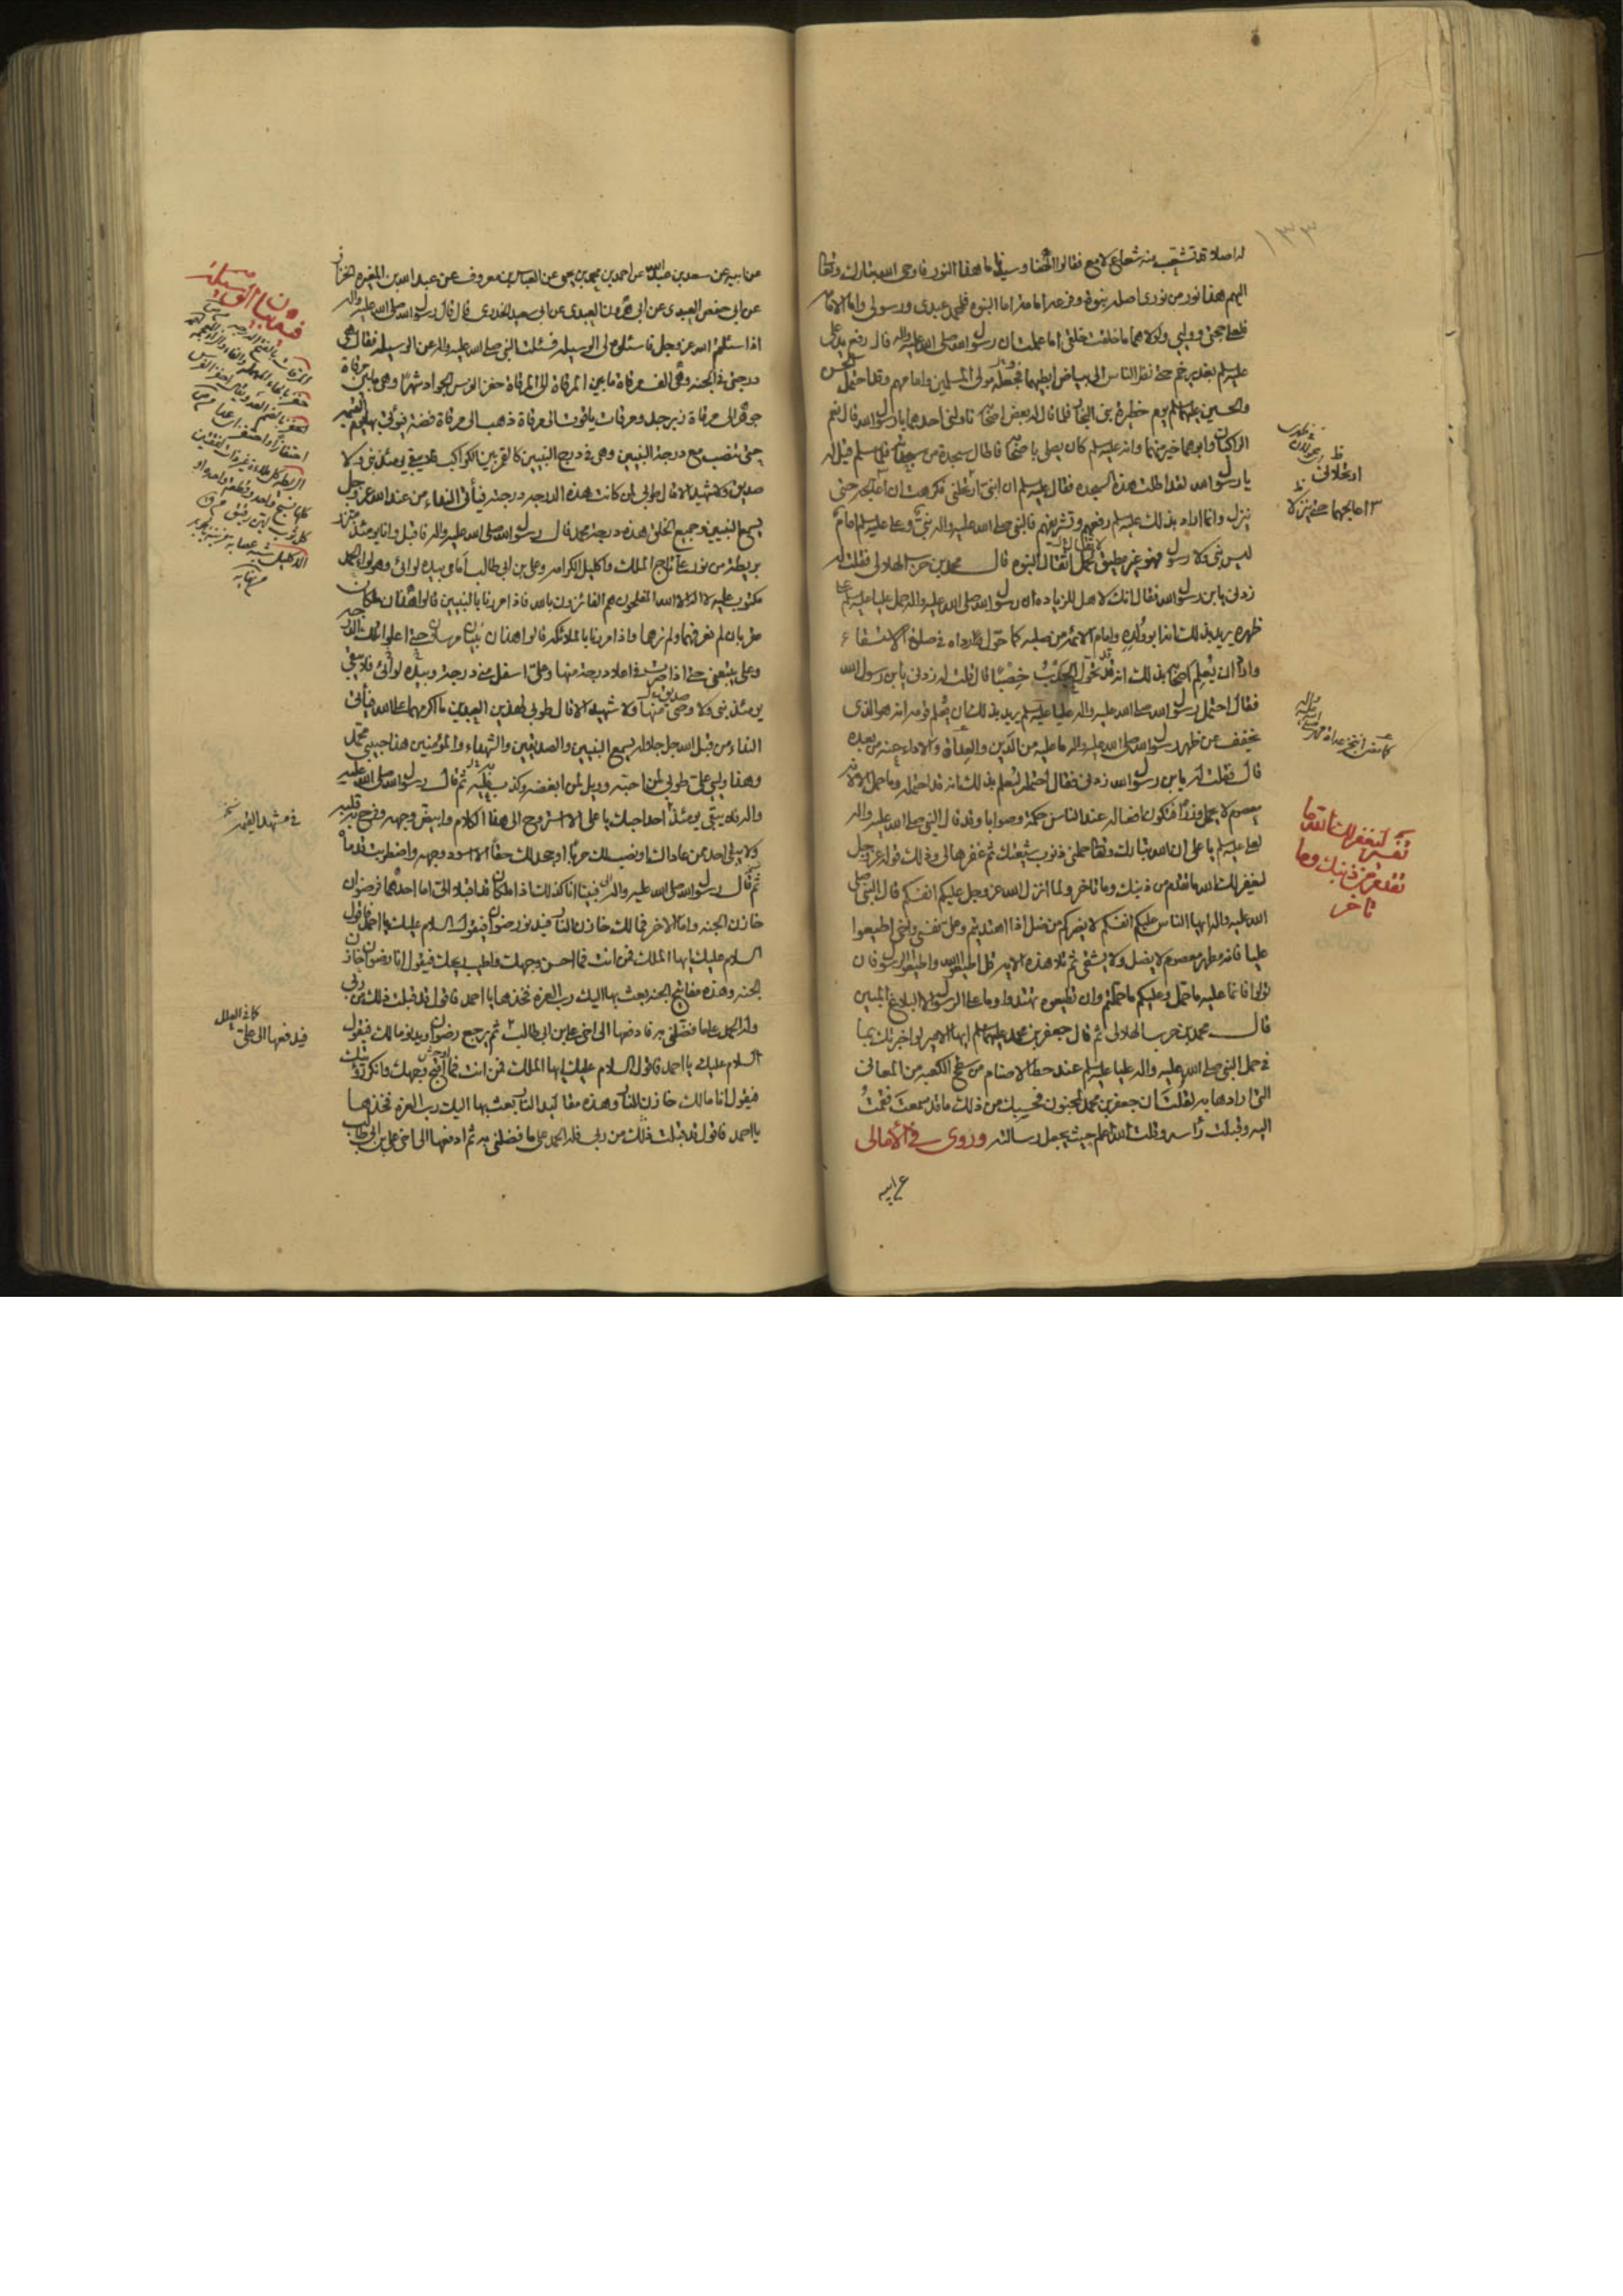 ١٣٣
له اصلا قد تشعب منه شعاع لامع فقالوا الهنا وسيدنا ما هذا النور فاوحى الله تبارك وتعالى
اليهم هذا نور من نورى اصله نبوة وفرعه امامة اما النبوه فلمحمد عبدى ورسولى واما الامامه
فلعلى حجتى ووليى ولولاهما ما خلقت خلقى اما علمت ان رسول الله صلى الله عليه واله رفع يد على
عليه السلم بغدير خم حتى نظر الناس الى بياض ابطيهما فجعله مولى المسلمين وامامهم وقد احتمل الحسن
والحسين عليهما السلم يوم حظيرة بنى النجار فلما قال له بعض اصحابه ناولنى احدهما يا رسول الله قال نعم
الراكبان وابوهما خير منهما وانه عليه السلم كان يصلى باصحابه فاطال سجدة من سجداته فلما سلم قيل له
يا رسول الله لقد اطلت هذه السجده فقال عليه السلم ان ابنى ارتحلنى فكرهت ان اعاجله حتى
ينزل وانما اراد بذلك عليه السلم رفعهم وتشريفهم فالنبى صلى الله عليه واله نبى وعلى عليه السلم امام
ليس بنبى ولا رسول فهو غير مطيق لحمل اثقال النبوه قال محمد بن حرب الهلالى فقلت له
زدنى يا بن رسول الله فقال انك لاهل للزياده ان رسول الله صلى الله عليه واله حمل عليا عليه السلم على
ظهره يريد بذلك انه ابو ولده وامام الائمه من صلبه كما حول رداءه فى صلوة الاستسقاء
واراد ان يعلم اصحابه بذلك انه قد تحول الجدب خصبا قال قلت له زدنى يا بن رسول الله
فقال احتمل رسول الله صلى الله عليه واله عليا عليه السلم يريد بذلك ان يعلم قومه انه هو الذى
يخفف عن ظهر رسول الله صلى الله عليه واله ما عليه من الدين والعداة والاداء عنه من بعده
قال فقلت له يا بن رسول الله زدنى فقال احتمله ليعلم بذلك انه قد احتمله وما حمل الا لانه
معصوم لا يحمل وزرا فتكون افعاله عند الناس حكمة وصوابا وقد قال النبى صلى الله عليه واله
لعلى عليه السلم يا على ان الله تبارك وتعالى حملنى ذنوب شيعتك ثم غفرها لى وذلك قوله عز وجل
ليغفر لك الله ما تقدم من ذنبك وما تاخر ولما انزل الله عز وجل عليكم انفسكم قال النبى صلى
الله عليه واله ايها الناس عليكم انفسكم لا يضركم من ضل اذا اهتديتم وعلى نفسى واخى اطيعوا
عليا فانه مطهر معصوم لا يضل ولا يشقى ثم تلا هذه الايه قل اطيعوا الله واطيعوا الرسول فان
تولوا فانما عليه ما حمل وعليكم ما حملتم وان تطيعوه تهتدوا وما على الرسول الا البلاغ المبين
قال محمد بن حرب الهلالى ثم قال جعفر بن محمد عليهما السلم ايها الامير لو اخبرتك بما
فى حمل النبى صلى الله عليه واله عليا عليه السلم عند حط الاصنام من سطح الكعبه من المعانى
التى ارادها به لقلت ان جعفر بن محمد لمجنون فحسبك من ذلك ما قد سمعت فقمت
اليه وقبلت راسه وقلت الله اعلم حيث يجعل رسالته وروى فى الامالى
عن ابيه
ارتحلانى
تفسير ليغفر لك الله ما
تقدم من ذنبك وما
تاخر
عن ابيه عن سعد بن عبد الله عن احمد بن محمد بن يحيى عن العباس بن معروف عن عبد الله بن المغيره الخزاز
عن ابى حفص العبدى عن ابى هرون العبدى عن ابى سعيد الخدرى قال قال رسول الله صلى الله عليه واله
اذا سئلتم الله عز وجل فاسئلوه لى الوسيله فسئلت النبى صلى الله عليه واله عن الوسيله فقال هى
درجتى فى الجنه وهى الف مرقاة ما بين المرقاة الى المرقاة حضر الفرس الجواد شهرا وهى ما بين مرقاة
جوهر الى مرقاة زبرجد ومرقات ياقوت الى مرقاة ذهب الى مرقاة فضة فيؤتى بها يوم القيمه
حتى تنصب مع درجة النبيين وهى فى درج النبيين كالقمر بين الكواكب فلا يبقى يومئذ نبى ولا
صديق ولا شهيد الا قال طوبى لمن كانت هذه الدرجه درجته فيأتى النداء من عند الله عز وجل
يسمع النبيين وجميع الخلق هذه درجة محمد قال رسول الله صلى الله عليه واله فاقبل وانا يومئذ متزر
بريطة من نور على تاج الملك واكليل الكرامه وعلى بن ابى طالب امامى بيده لوائى وهو لواء الحمد
مكتوب عليه لا اله الا الله المفلحون هم الفائزون بالله فاذا مررنا بالنبيين قالوا هذان ملكان
مقربان لم نعرفهما ولم نرهما واذا مررنا بالملائكه قالوا هذان نبيان مرسلان حتى اعلو الدرجه
وعلى يتبعنى حتى اذا صرت فى اعلا درجة منها وعلى اسفل منى درجة وبيده لوائى فلا يبقى
يومئذ نبى ولا وصى ولا شهيد الا قال طوبى لهذين العبدين ما اكرمهما على الله فيأتى
النداء من قبل الله جل جلاله يسمع النبيين والصديقين والشهداء والمؤمنين هذا حبيبى محمد
وهذا وليى على طوبى لمن احبه وويل لمن ابغضه وكذب عليه ثم قال رسول الله صلى الله عليه
واله فلا يبقى يومئذ احد احبك يا على الا استروح الى هذا الكلام وابيض وجهه وفرح قلبه
ولا يبقى احد ممن عاداك او نصب لك حربا او جحد لك حقا الا اسود وجهه واضطربت قدماه
ثم قال رسول الله صلى الله عليه واله فبينا انا كذلك اذا ملكان قد اقبلا الى اما احدهما فرضوان
خازن الجنه واما الاخر فمالك خازن النار فيدنو رضوان فيقول السلام عليك يا احمد فاقول
السلام عليك ايها الملك من انت فما احسن وجهك واطيب ريحك فيقول انا رضوان خازن
الجنه وهذه مفاتيح الجنه بعث بها اليك رب العزه فخذها يا احمد فاقول قد قبلت ذلك من ربى
وله الحمد على ما فضلنى به فادفعها الى اخى على بن ابى طالب ثم يرجع رضوان ويدنو مالك فيقول
السلام عليك يا احمد فاقول السلام عليك ايها الملك من انت فما اقبح وجهك وانكر رؤيتك
فيقول انا مالك خازن النار وهذه مقاليد النار بعث بها اليك رب العزه فخذها
يا احمد فاقول قد قبلت ذلك من ربى فله الحمد على ما فضلنى به ثم ادفعها الى اخى على بن ابى طالب
فى مشهد القيمه
كما فى العلل
فيدفعها الى على